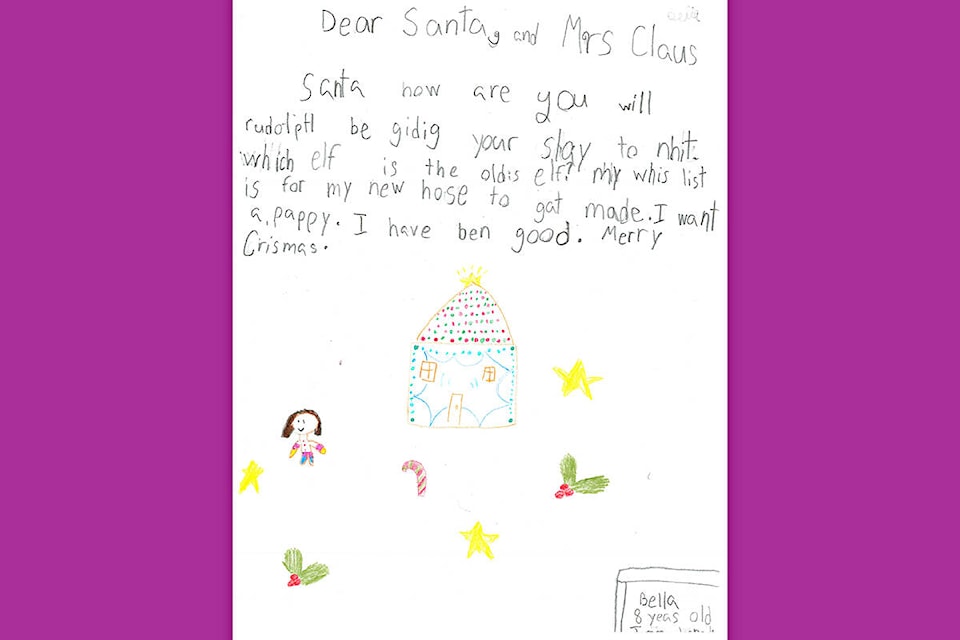 Dear Santa, and Mrs Claus
Santa how are you will
rudolptl be gidig your slgay to nhit.
which elf is the oldis elf? my whis list
is for my new hose to gat made. I want
a pappy. I have ben good. Merry
Crismas.
Bella
8 yeas old